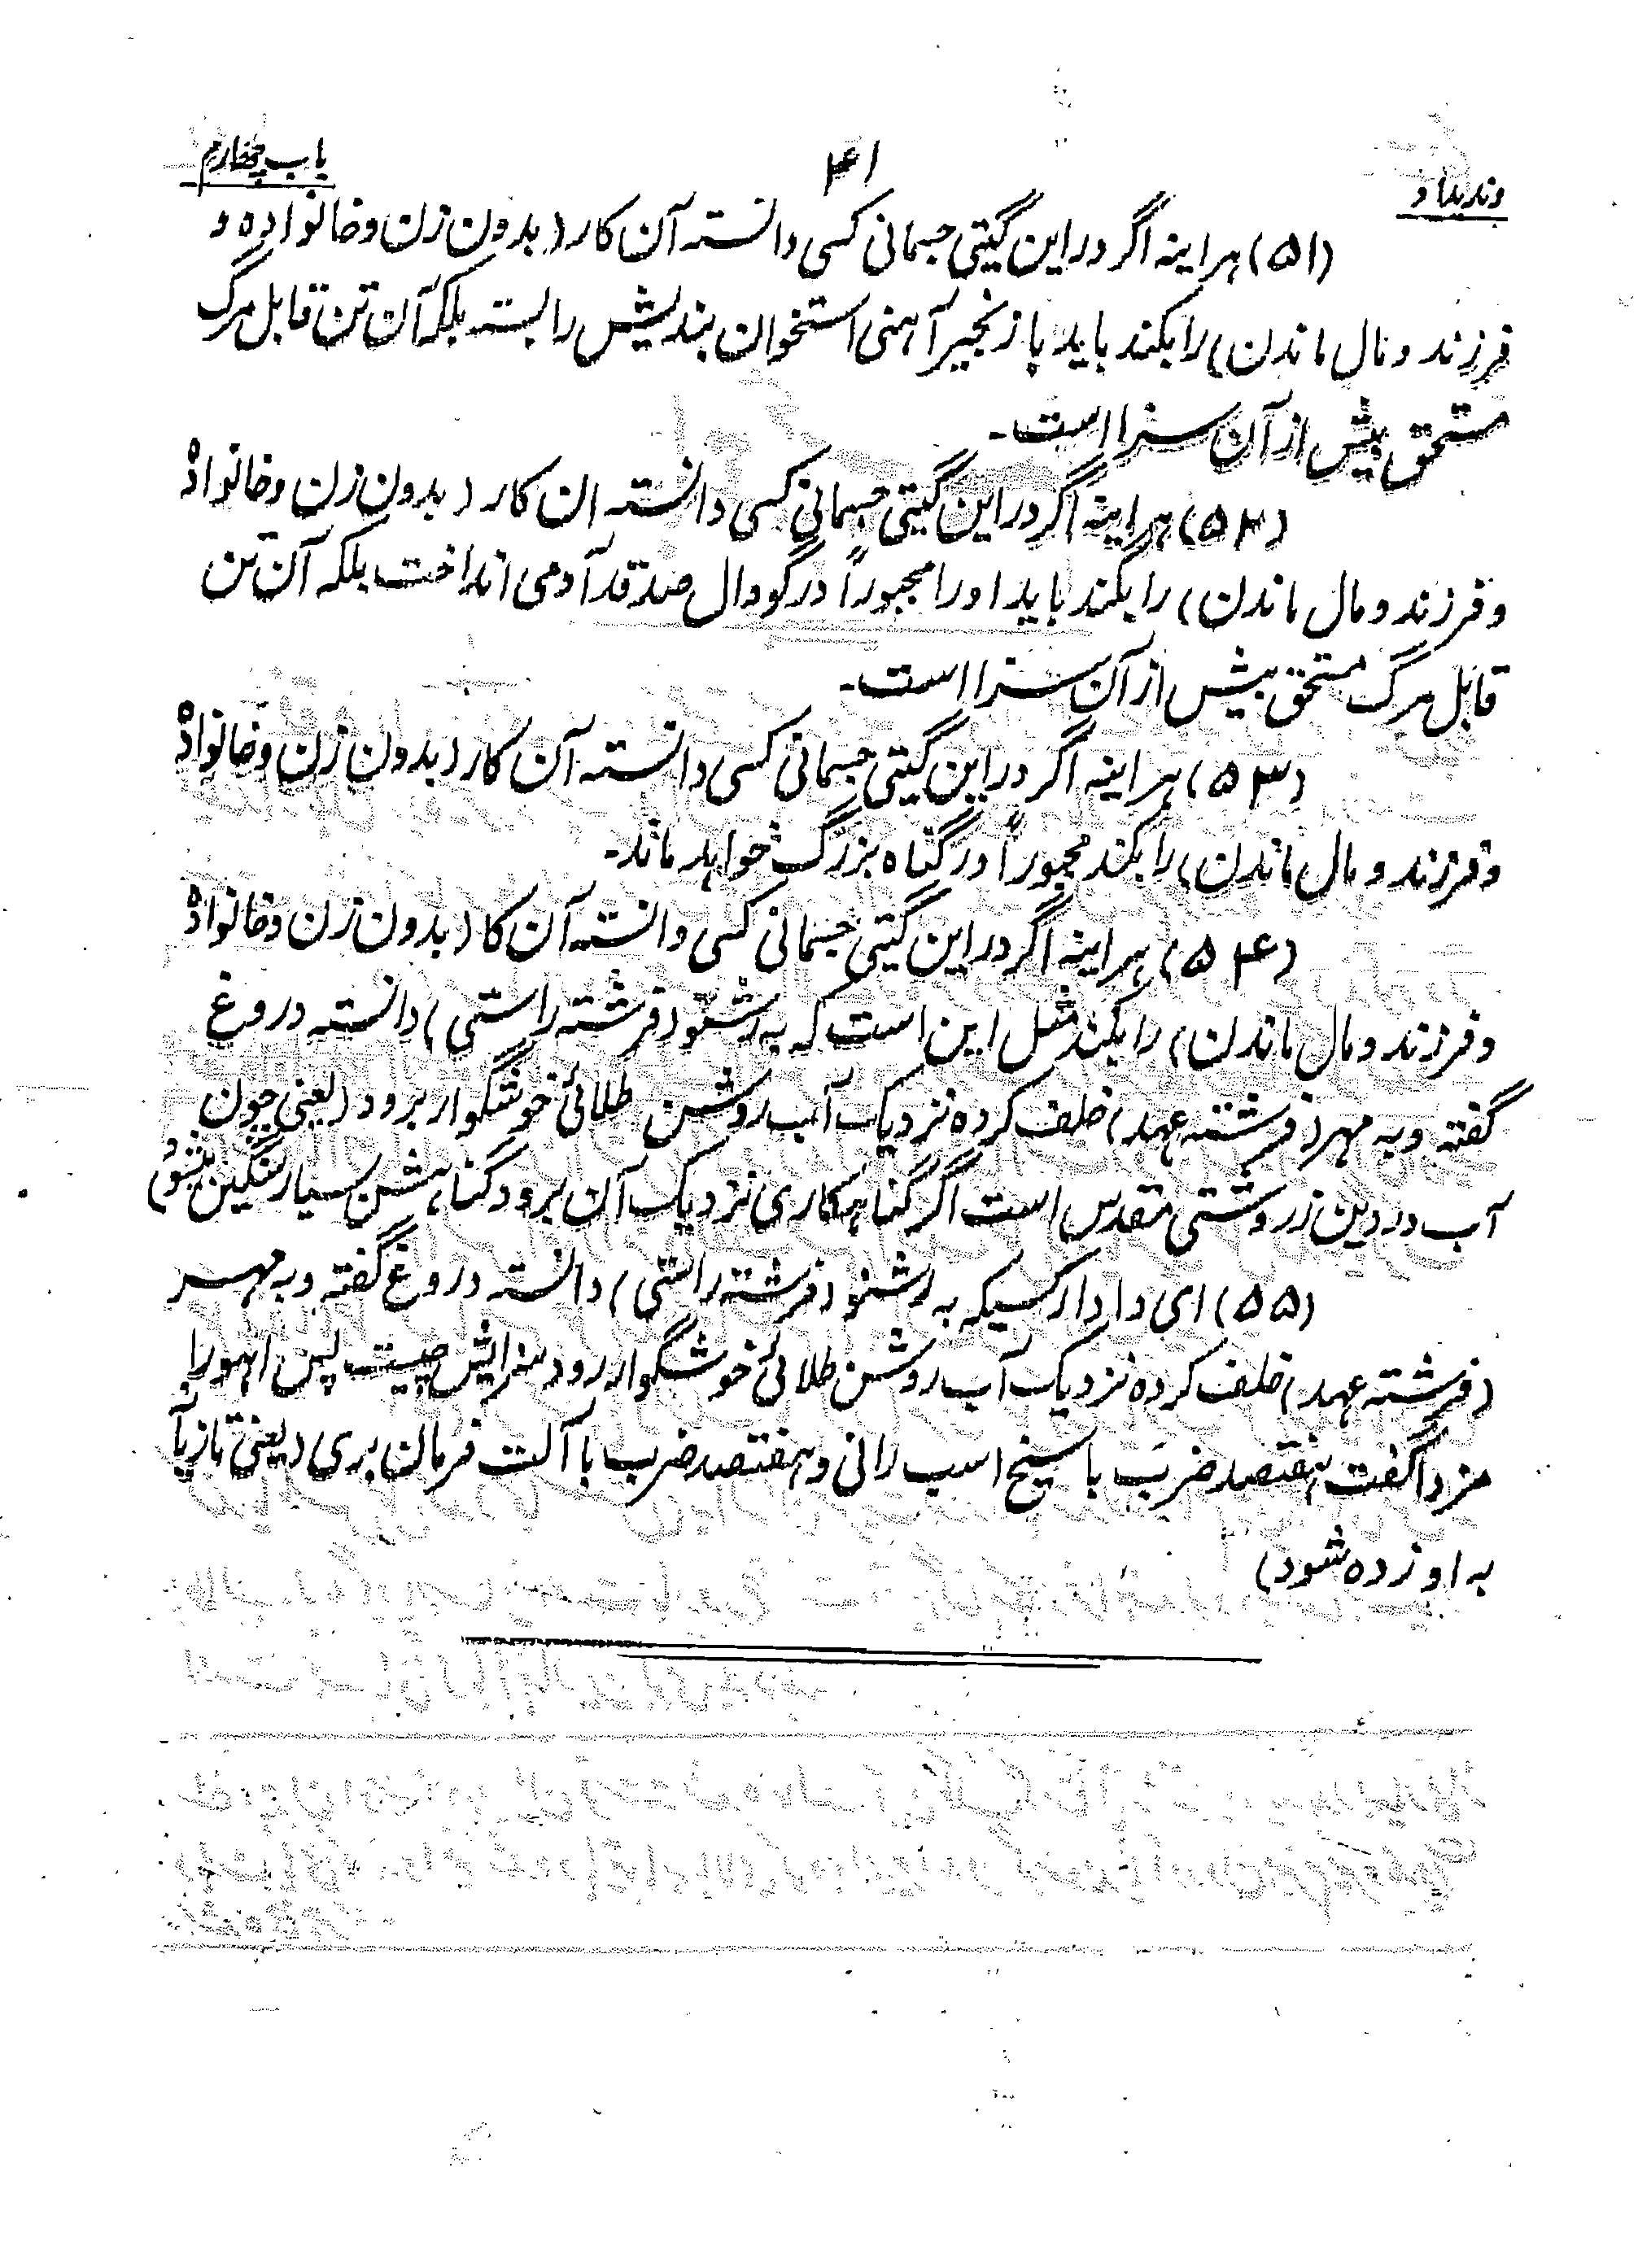 وندیداد
۴۱
باب چهارم
(۵۱) هراینه اگر در این گیتی جسمانی کسی دانسته آن کار (بدون زن و خانواده و
فرزند و مال ماندن) را بکند باید با زنجیر آهنی استخوان بندیش را بست بلکه آن تن قابل مرگ
مستحق بیش از آن سزا است۔
(۵۲) هراینه اگر در این گیتی جسمانی کسی دانسته ان کار (بدون زن و خانواده
و فرزند و مال ماندن) را بکند باید او را مجبوراً در گودال صد قد آدمی انداخت بلکه آن تن
قابل مرگ مستحق بیش از آن سزا است۔
(۵۳) هراینه اگر در این گیتی جسمانی کسی دانسته آن کار (بدون زن و خانواده
و فرزند و مال ماندن) را بکند مجبوراً در گناه بزرگ خواهد ماند۔
(۵۴) هراینه اگر در این گیتی جسمانی کسی دانسته آن کا (بدون زن و خانواده
و فرزند و مال ماندن) را بکند مثل این است که به رشنو (فرشته راستی) دانسته دروغ
گفته و به مهر (فرشته عهد) خلف کرده نزدیک آب روشن طلائی خوشگوار برود (یعنی چون
آب در دین زروشتی مقدس است اگر گناهکاری نزدیک آن برود گناهش بسیار سنگین میشود)
(۵۵) ای دادار کسیکه به رشنو (فرشته راستی) دانسته دروغ گفته و به مهر
(فرشته عهد) خلف کرده نزدیک آب روشن طلائی خوشگوار رود سزایش چیست پس اهورا
مزدا گفت هفتصد ضرب با سیخ اسب رانی و هفتصد ضرب با آلت فرمان بری (یعنی تازیانه
به او زده شود)